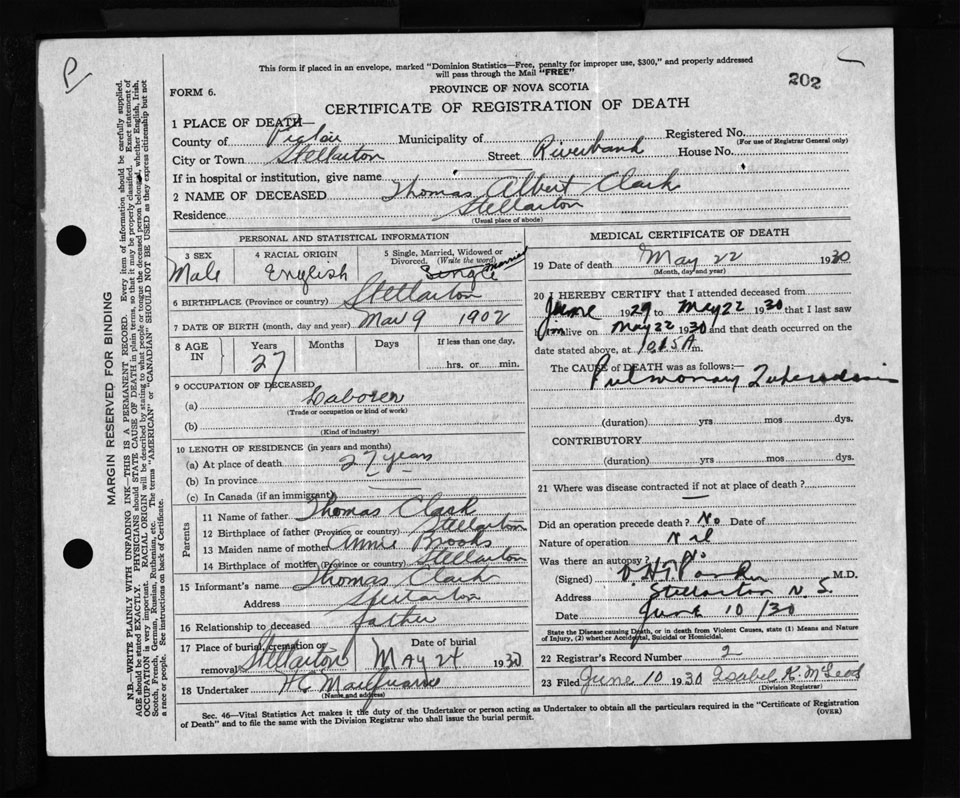 P
202
This form if placed in an envelope, marked "Dominion Statistics—Free, penalty for improper use, $300," and properly addressed
will pass through the Mail "FREE"
FORM 6.
PROVINCE OF NOVA SCOTIA
CERTIFICATE OF REGISTRATION OF DEATH
1 PLACE OF DEATH—
County of Pictou Municipality of Registered No.
(For use of Registrar General only)
City or Town Stellarton Street Riverbank House No.
If in hospital or institution, give name
2 NAME OF DECEASED Thomas Albert Clark
Residence Stellarton
(Usual place of abode)
PERSONAL AND STATISTICAL INFORMATION
3 SEX 4 RACIAL ORIGIN 5 Single, Married, Widowed or
Divorced. (Write the word)
Male English Single Married
6 BIRTHPLACE (Province or country) Stellarton
7 DATE OF BIRTH (month, day and year) Mar 9 1902
8 AGE IN Years Months Days If less than one day,
27 hrs. or min.
9 OCCUPATION OF DECEASED
(a) Laborer
(Trade or occupation or kind of work)
(b)
(Kind of industry)
10 LENGTH OF RESIDENCE (in years and months)
(a) At place of death 27 years
(b) In province
(c) In Canada (if an immigrant)
Parents
11 Name of father Thomas Clark
12 Birthplace of father (Province or country) Stellarton
13 Maiden name of mother Annie Brooks
14 Birthplace of mother (Province or country) Stellarton
15 Informant's name Thomas Clark
Address Stellarton
16 Relationship to deceased father
17 Place of burial, cremation or Date of burial
removal Stellarton May 24 1930
18 Undertaker H C
(Name and address)
MEDICAL CERTIFICATE OF DEATH
19 Date of death May 22 1930
(Month, day and year)
20 I HEREBY CERTIFY that I attended deceased from
June 1929 to May 22 1930 that I last saw
him alive on May 22 1930 and that death occurred on the
date stated above, at 10.15 A m.
The CAUSE of DEATH was as follows:—
Pulmonary Tuberculosis
(duration) yrs mos dys.
CONTRIBUTORY
(duration) yrs mos dys.
21 Where was disease contracted if not at place of death?
Did an operation precede death? No Date of
Nature of operation Nil
Was there an autopsy? No
(Signed) M.D.
Address Stellarton N. S.
Date June 10/30
State the Disease causing Death, or in death from Violent Causes, state (1) Means and Nature
of Injury, (2) whether Accidental, Suicidal or Homicidal.
22 Registrar's Record Number 2
23 Filed June 10 1930 Isabel K. McLeod
(Division Registrar)
Sec. 46—Vital Statistics Act makes it the duty of the Undertaker or person acting as Undertaker to obtain all the particulars required in the "Certificate of Registration
of Death" and to file the same with the Division Registrar who shall issue the burial permit.
(OVER)
MARGIN RESERVED FOR BINDING
N.B.—WRITE PLAINLY WITH UNFADING INK—THIS IS A PERMANENT RECORD. Every item of information should be carefully supplied.
AGE should be stated EXACTLY. PHYSICIANS should STATE CAUSE OF DEATH in plain terms, so that it may be properly classified. Exact statement of
OCCUPATION is very important. RACIAL ORIGIN will be described by stating to what people or tongue the deceased person belonged, whether English, Irish,
Scotch, French, German, Russian, Ruthenian, etc. The terms "AMERICAN" or "CANADIAN" SHOULD NOT BE USED as they express citizenship but not
a race or people. See instructions on back of Certificate.